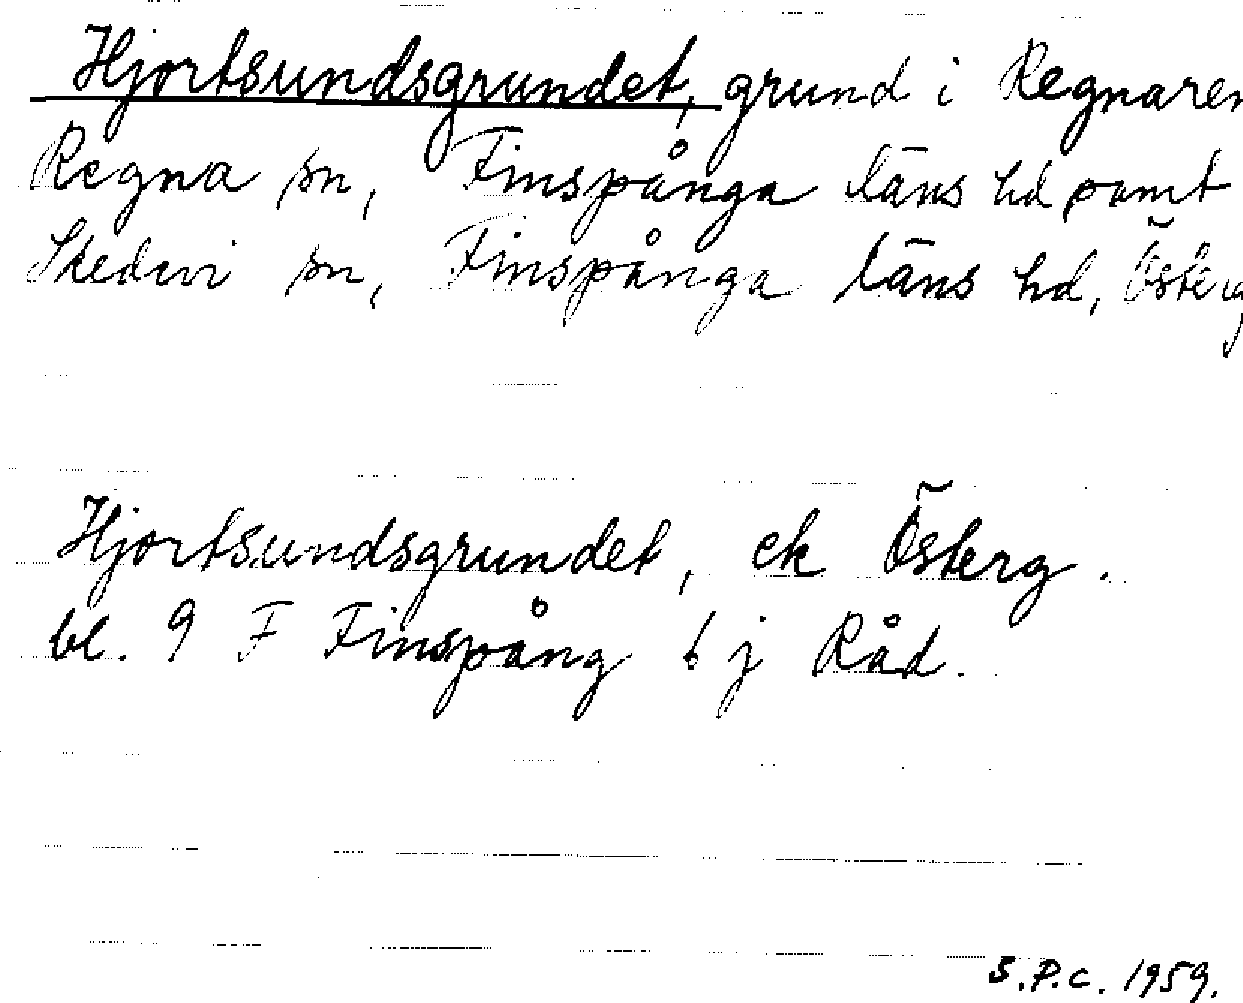 Hjortsundsgrundet, grund i Regnaren
Regna sn, Finspånga läns hd samt
Skedevi sn, Finspånga läns hd, Österg
Hjortsundsgrundet, ek Österg.
bl. 9 F Finspång 6 j Råd.
S.P.C. 1959.